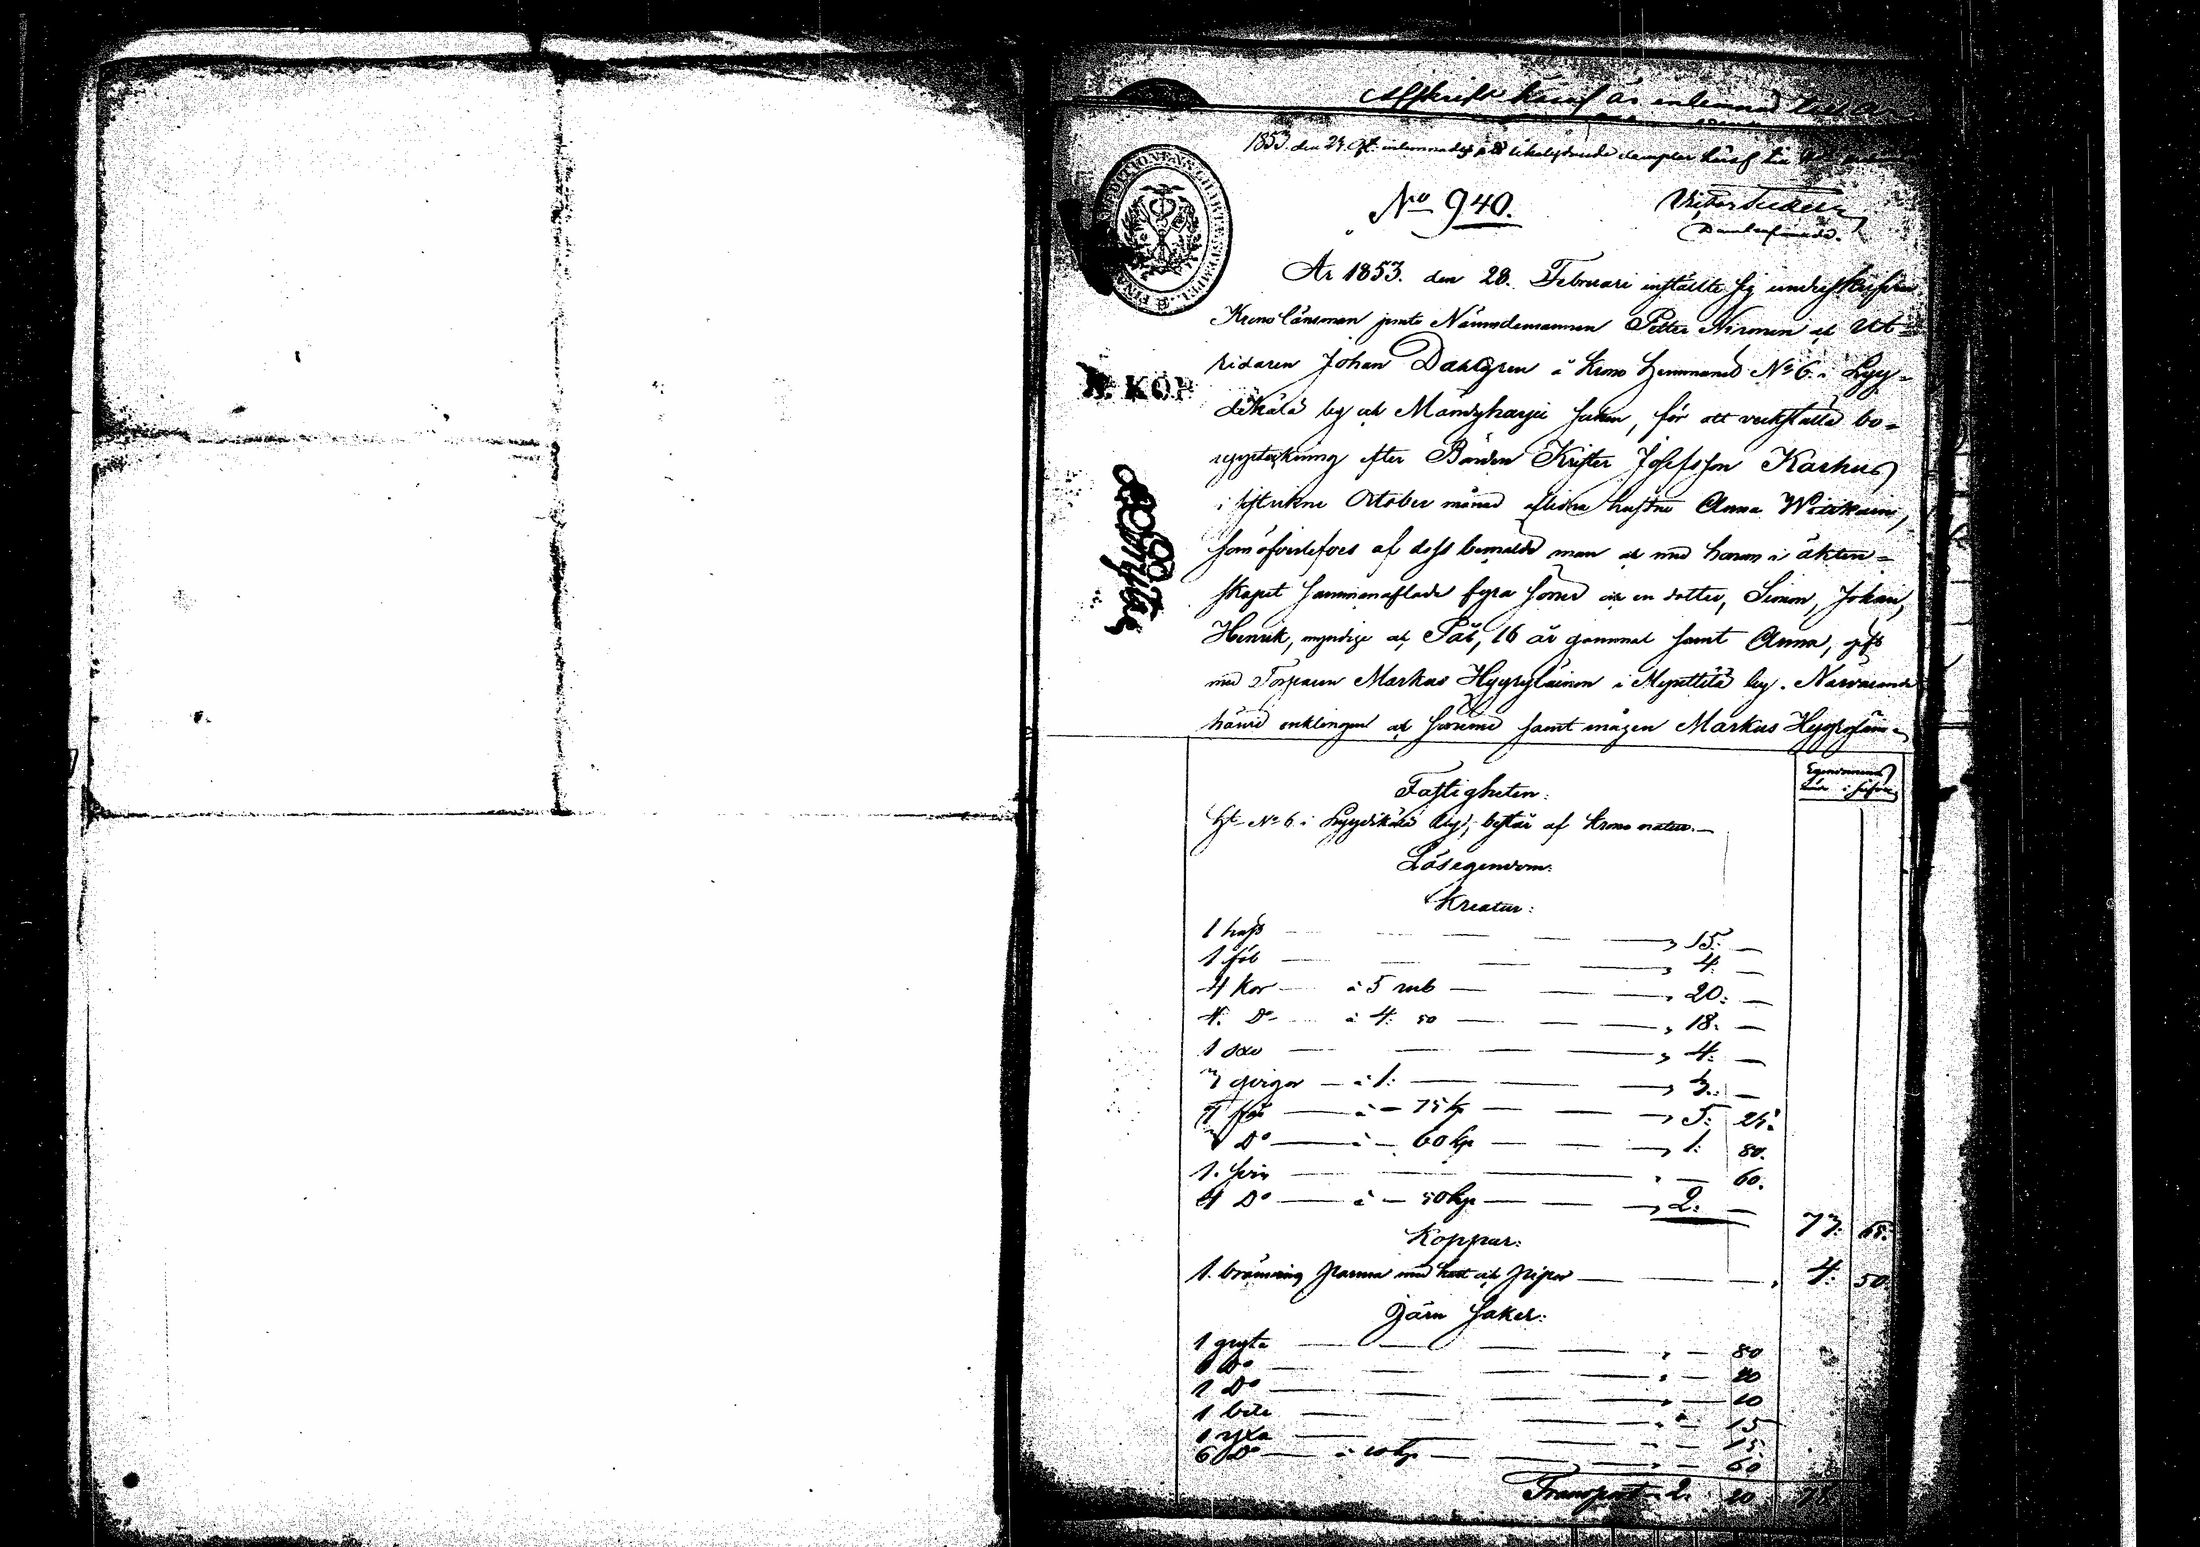 Afskrift häraf är inlemnad
1853. den 24. inlemnadt häraf
No 940.
År 1853. den 28. Februari inställte sig undertecknad
Kronolänsman jemte Nämndemannen Petter Nironen och Ut-
ridaren Johan Dahlgren å Krono hemmanet No 6 i Lyy-
dikälä by och Mändyharju socken, för att verkställa bo-
uppteckning efter Bonden Krister Josefsson Karhus
i sistvikne October månad aflidna hustru Anna
som öfverlefves af dess bemälde man och med honom i äkten-
skapet sammanaflade fyra söner och en dotter, Simon, Johan,
Henrik, myndige och Pål, 16 år gammal samt Anna, gift
med Torparen Markus Hyyryläinen i Mynttilä by. Närvarande
härvid enklingen och sönerne samt mågen Markus Hyyryläin-
Egendomens
Fastigheten:
Ht No 6 i Lyydikälä by, består af krono natur.
Lösegendom:
Kreatur:
1 häst 15: —
1 föl 4: —
4 kor à 5 rub 20: —
4. Do à 4: 50 18: —
1 oxe 4: —
3 qvigor à 1: 3: —
7 får à — 75 kp 5: 25:
3 Do à — 60 kp 1: 80.
1. svin — 60.
4 Do à — 50 kp 2: —
73: 65:
Koppar:
1. bränvins panna med hatt och pipor 4: 50
Järn saker:
1 gryta — 80
1 Do — 40
1 Do — 10
1 — 15
1 yxa — 15
6 Do à 10 kp — 60
Transport 2. 20 78